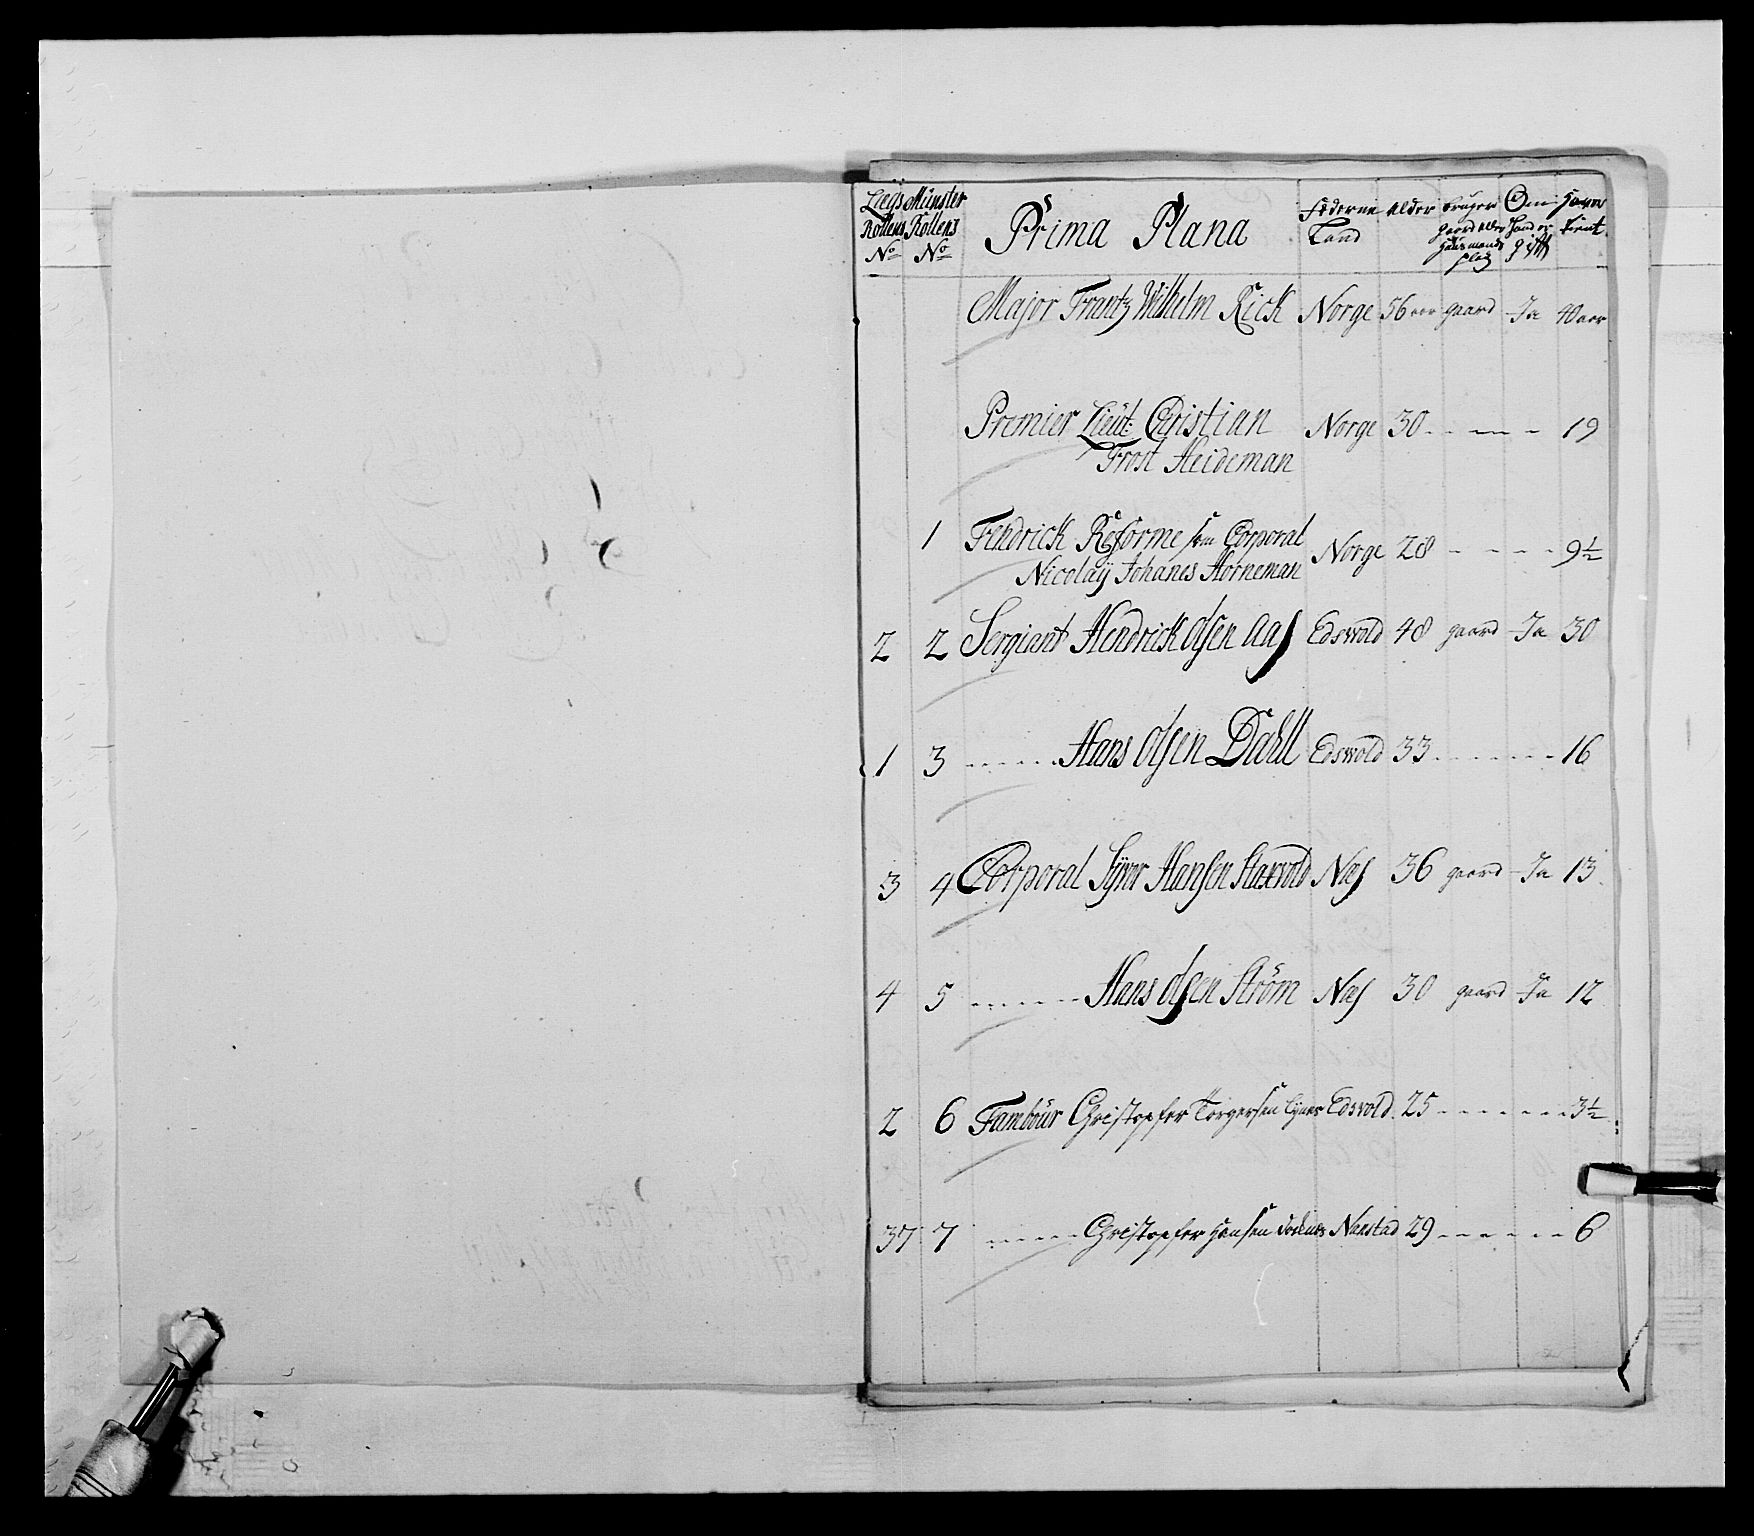 Lægs Rollens No Münster Rollens No Prima Plana Føderne Land Alder bruger gaard eller huusmands plaz Om Hand er gift Haver tient
Major Frantz Wilhelm Rick Norge 56 aar gaard Ja 40 aar
Premier Lieut: Christian Norge 30 - - - - 19
Frost Heideman
1 Fendrick Reforme som Corporal
Nicolaÿ Johanes Horneman Norge 28 - - - - 9½
2 2 Sergiant Hendrick Olsen Aas Edswold 48 gaard Ja 30
1 3 - - - - - Hans Olsen Dahll Edswold 33 - - - - - - 16
3 4 Corporal Syver Hansen Næs 36 gaard Ja 13
4 5 - - - - - Hans Olsen Ström Næs 30 gaard Ja 12
2 6 Tambour Christopfer Torgersen Edsvold 25 - - - - - - 3½
37 7 - - - - - Christopfer Hansen Nanstad 29 - - - - - - 6